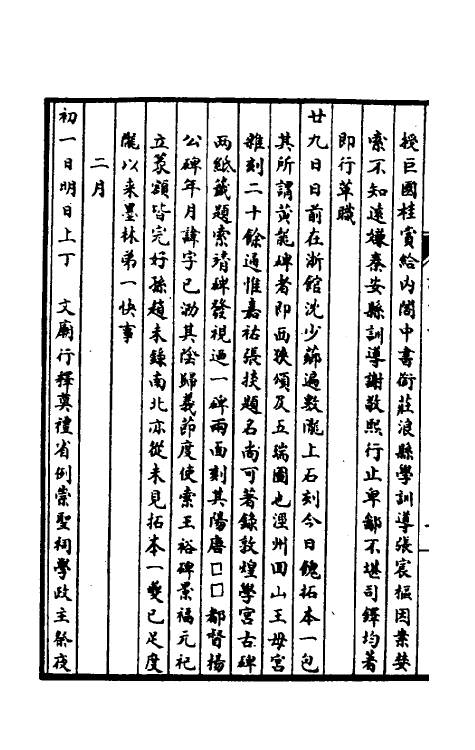 授巨國桂賞給內閣中書銜莊浪縣學訓導張宸樞因案婪
索不知遠嫌秦安縣訓導謝敬熙行止卑鄙不堪司鐸均著
即行革職
廿九日日前在浙館沈少蓊遍數隴上石刻今日餽拓本一包
其所謂黃龍碑者即西狹頌及五瑞圖也涇州回山王母宮
雜刻二十餘通惟嘉祐張掞題名尚可著錄敦煌學宮古碑
兩紙籤題索靖碑發視迺一碑兩面刻其陽唐□□都督楊
公碑年月諱字已泐其陰歸義節度使索王裕碑景福元祀
立篆額皆完好孫趙未錄南北亦從未見拓本一夔已足度
隴以來墨林第一快事
二月
初一日明日上丁 文廟行釋奠禮省例崇聖祠學政主祭夜